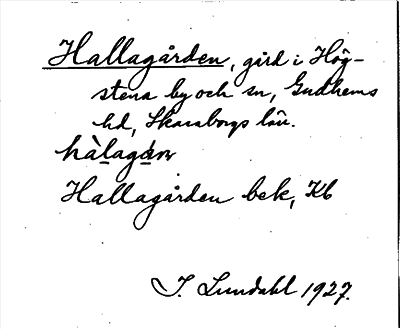 Hallagården, gård i Hög-
stena by och sn, Gudhems
hd, Skaraborgs län.
hàlagán
Hallagården bek, Kb
I. Lundahl 1927.